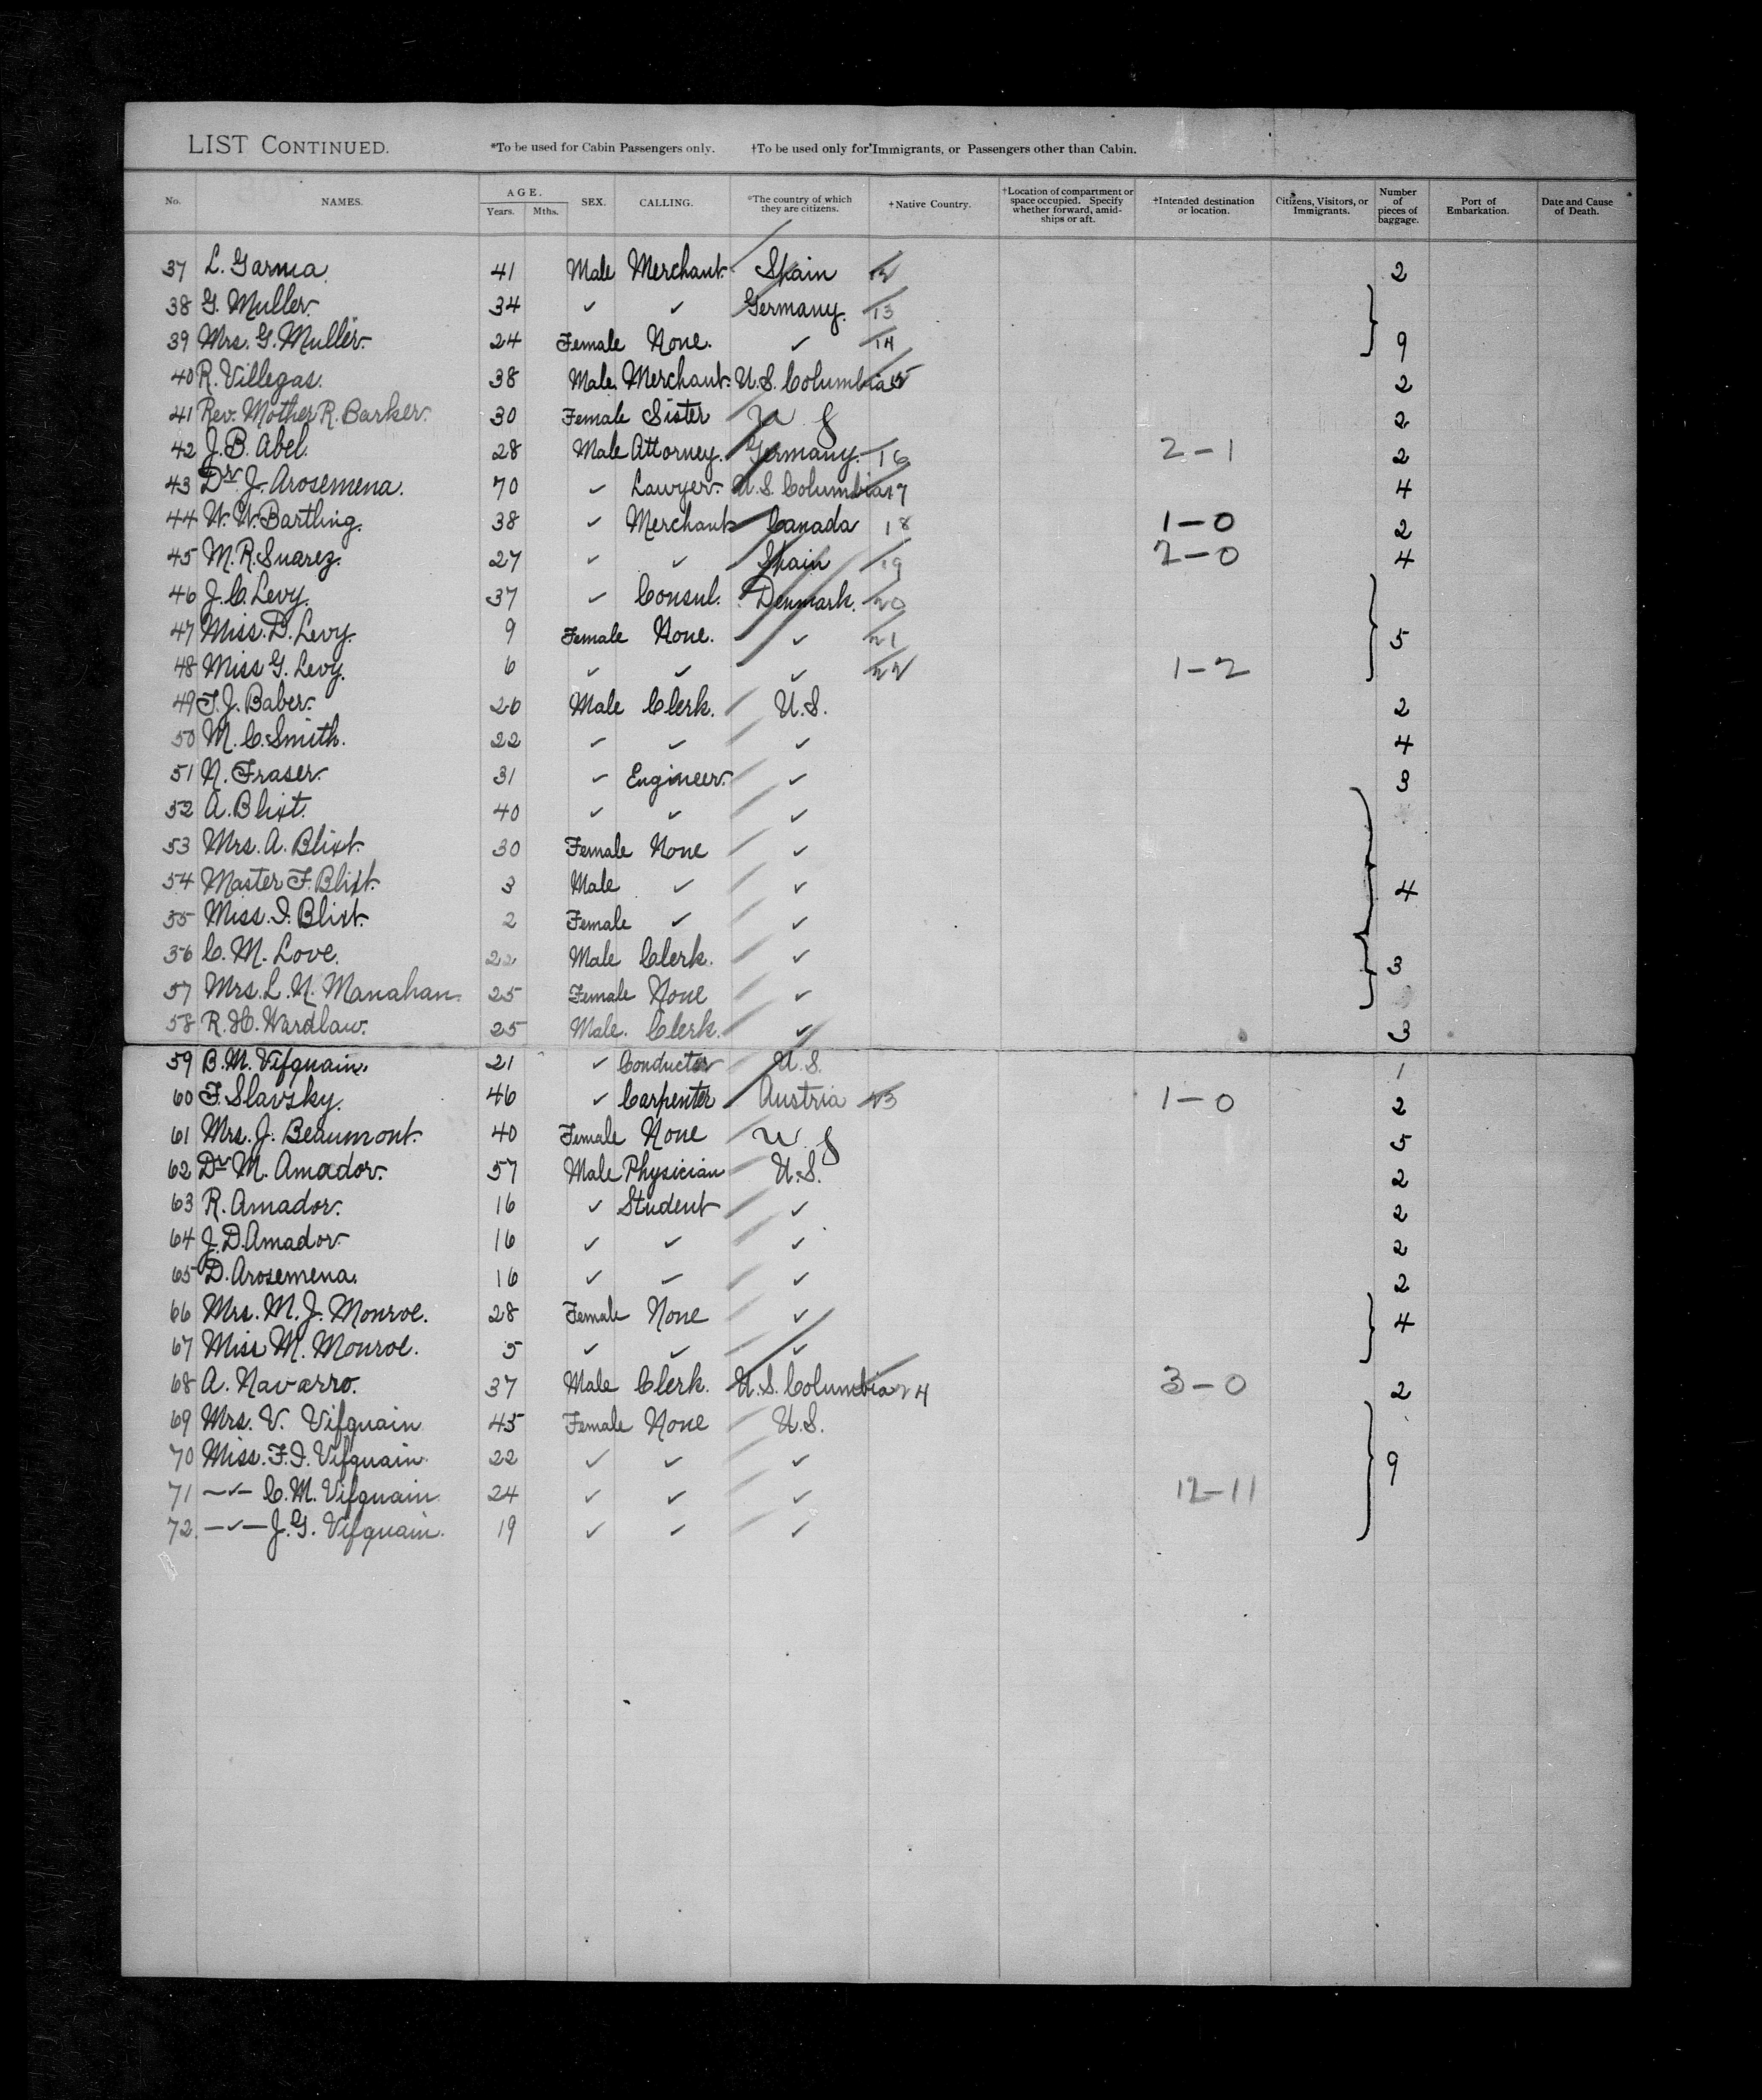 LIST CONTINUED. *To be used for Cabin Passengers only. †To be used only for Immigrants, or Passengers other than Cabin.
No. NAMES. AGE. Years. Mths. SEX. CALLING. *The country of which they are citizens. †Native Country. †Location of compartment or space occupied. Specify whether forward, amidships or aft. †Intended destination or location. Citizens, Visitors, or Immigrants. Number of pieces of baggage. Port of Embarkation. Date and Cause of Death.
37 L. Garma. 41 Male Merchant. Spain 12 2
38 G. Muller. 34 ✓ ✓ Germany. 13
39 Mrs. G. Muller. 24 Female None. ✓ 14 9
40 R. Villegas. 38 Male Merchant. U.S. Columbia 15 2
41 Rev. Mother R. Barker. 30 Female Sister 2
42 J. B. Abel. 28 Male Attorney. Germany. 16 2-1 2
43 Dr. J. Arosemena. 70 ✓ Lawyer. U.S. Columbia 17 4
44 W. W. Bartling. 38 ✓ Merchant Canada 18 1-0 2
45 M. R. Suarez. 27 ✓ ✓ Spain 19 2-0 4
46 J. C. Levy. 37 ✓ Consul. Denmark. 20
47 Miss. D. Levy. 9 Female None. ✓ 21 5
48 Miss G. Levy. 6 ✓ ✓ ✓ 22 1-2
49 T. J. Baber. 26 Male Clerk. U.S. 2
50 M. C. Smith. 22 ✓ ✓ ✓ 4
51 N. Fraser. 31 ✓ Engineer. ✓ 3
52 A. Blixt. 40 ✓ ✓ ✓
53 Mrs. A. Blixt. 30 Female None ✓
54 Master F. Blixt. 3 Male ✓ ✓ 4
55 Miss. I. Blixt. 2 Female ✓ ✓
56 C. M. Love. 22 Male Clerk. ✓ 3
57 Mrs. L. N. Manahan. 25 Female None ✓
58 R. H. Wardlaw. 25 Male. Clerk. ✓ 3
59 B. M. Vifquain. 21 ✓ Conductor U.S. 1
60 F. Slavsky. 46 ✓ Carpenter Austria 23 1-0 2
61 Mrs. J. Beaumont. 40 Female None U S 5
62 Dr. M. Amador. 57 Male Physician U.S. 2
63 R. Amador. 16 ✓ Student ✓ 2
64 J. D. Amador. 16 ✓ ✓ ✓ 2
65 D. Arosemena. 16 ✓ ✓ ✓ 2
66 Mrs. M. J. Monroe. 28 Female None ✓ 4
67 Miss M. Monroe. 5 ✓ ✓ ✓
68 A. Navarro. 37 Male Clerk. U.S. Columbia 24 3-0 2
69 Mrs. V. Vifquain 45 Female None U.S.
70 Miss. F. I. Vifquain. 22 ✓ ✓ ✓ 9
71 —✓— C. M. Vifquain 24 ✓ ✓ ✓ 12-11
72. —✓— J. G. Vifquain. 19 ✓ ✓ ✓